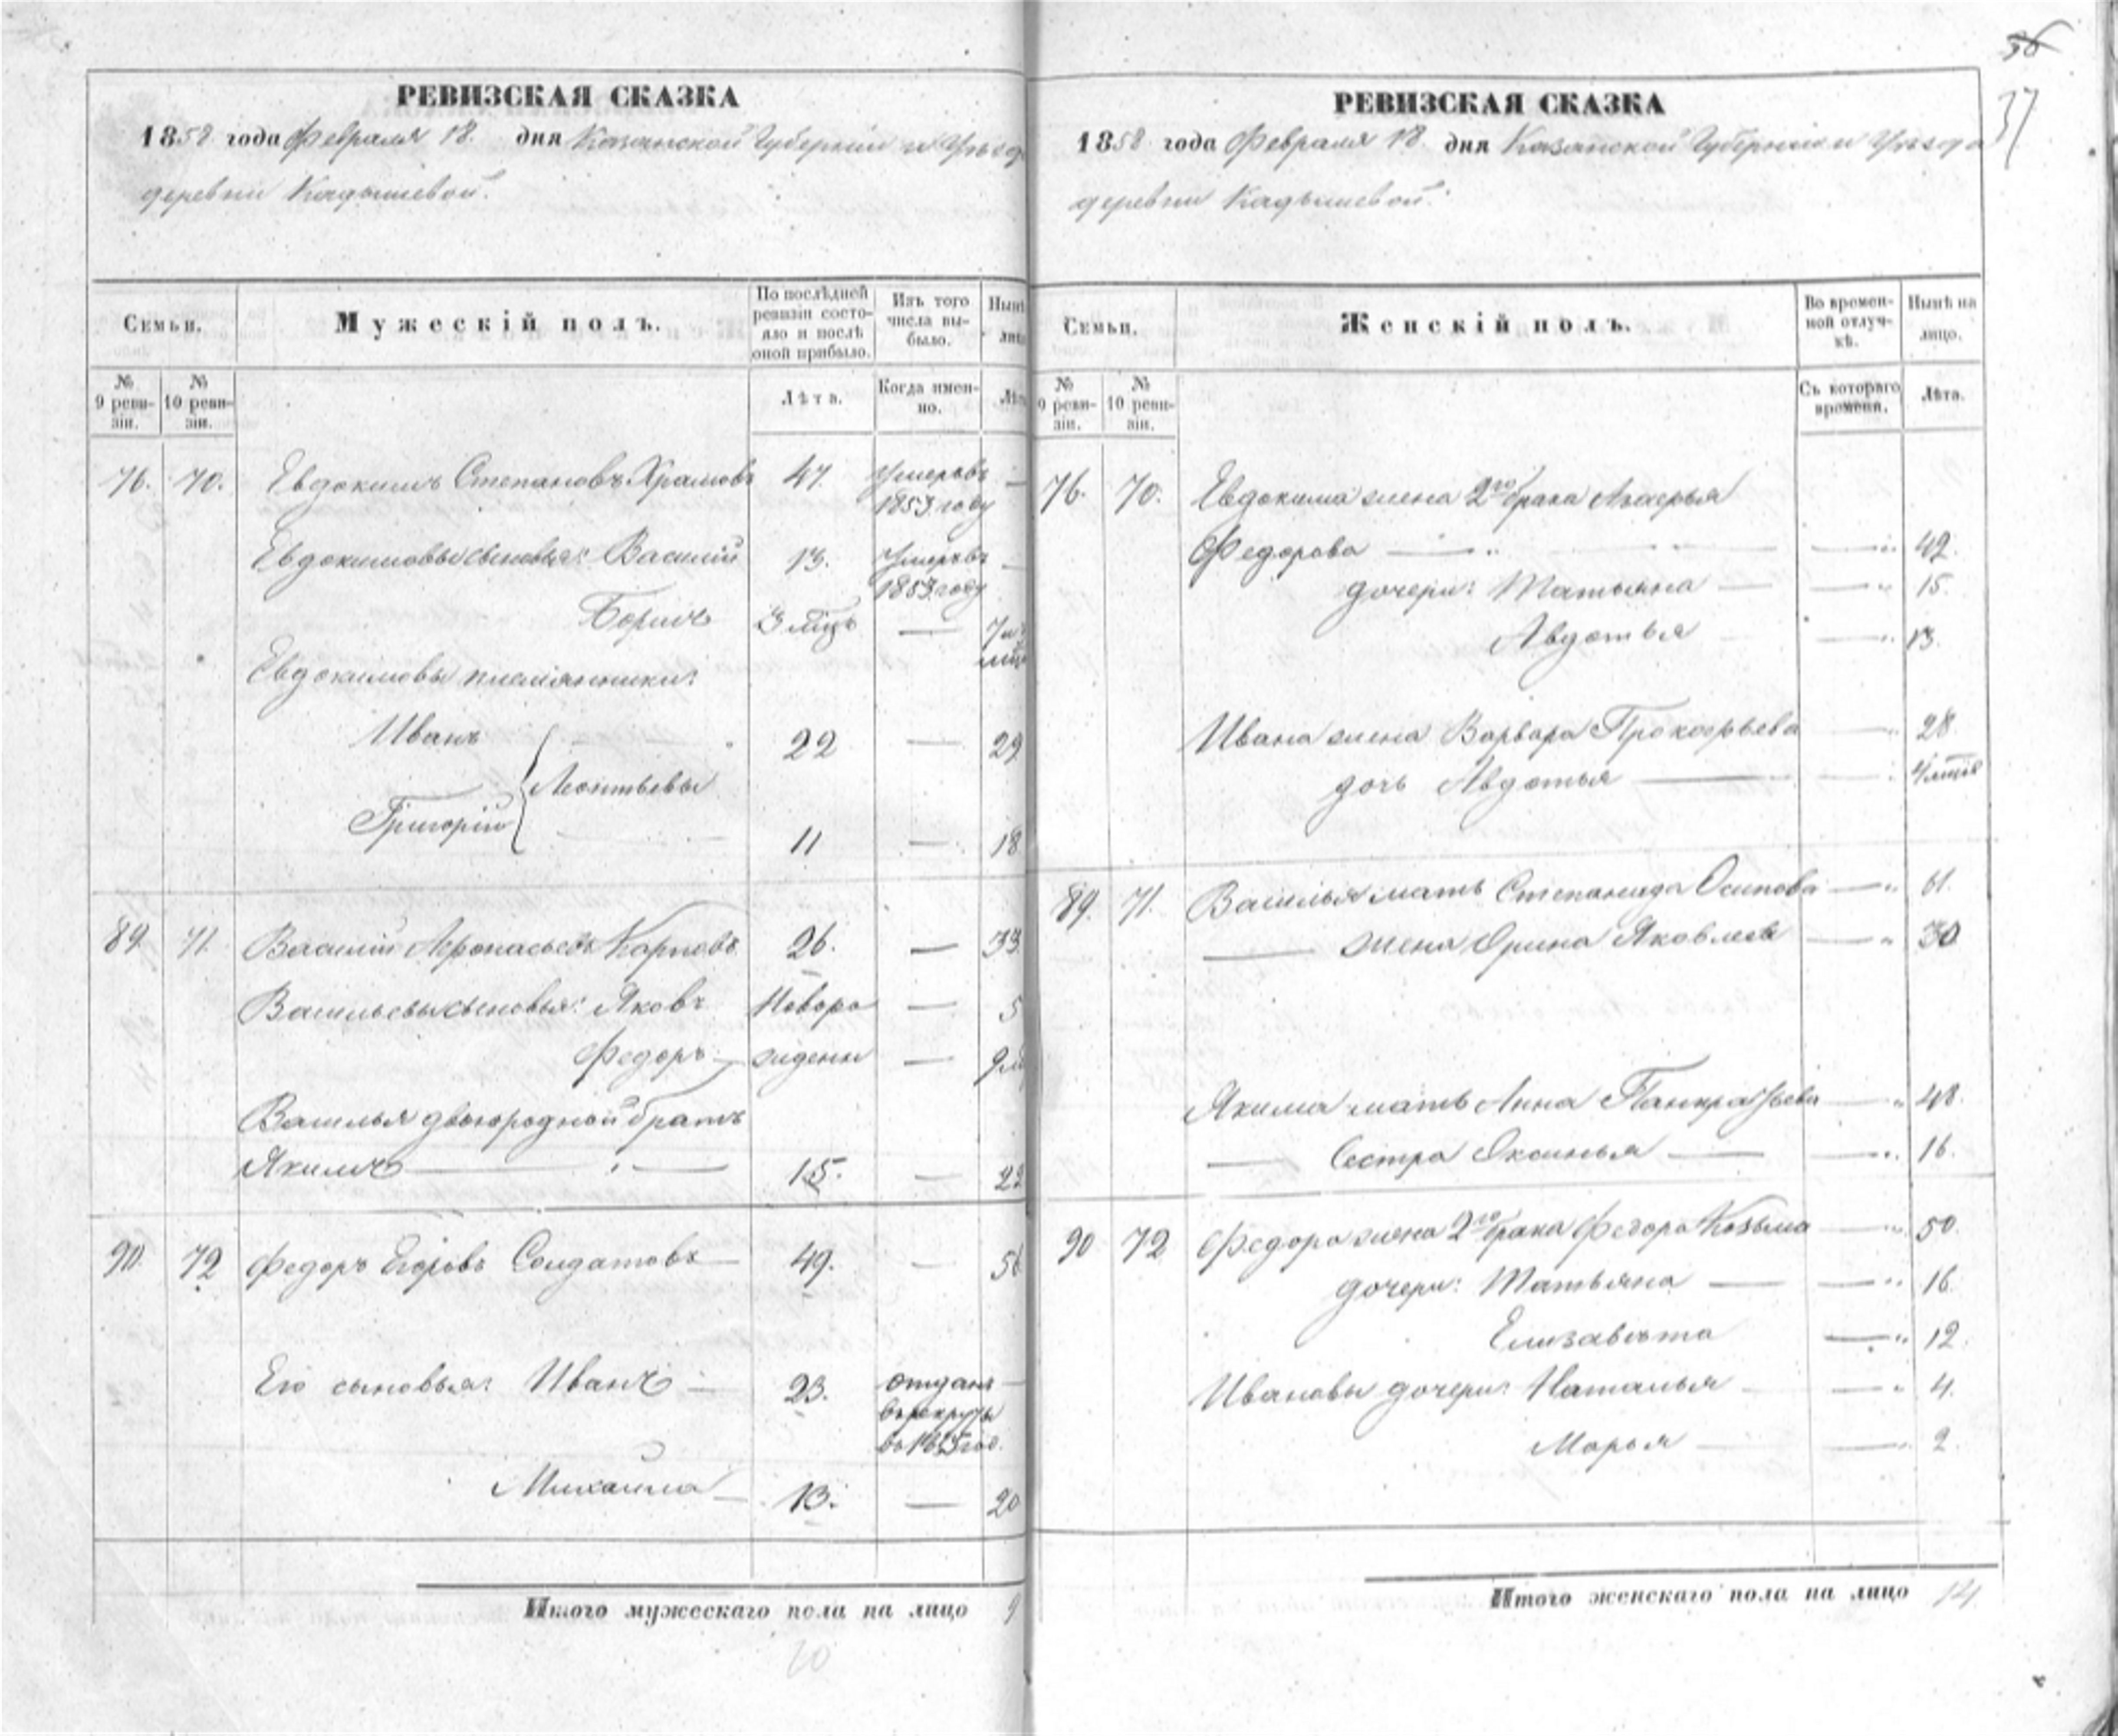 РЕВИЗСКАЯ СКАЗКА
1858 года Февраля 18. дня Казанской Губернии и Уезда
деревни Кадышевой.
Семьи.
Мужескій полъ.
По послѣдней ревизіи состояло и послѣ оной прибыло.
Изъ того числа выбыло.
Нынѣ
№ 9 ревизіи.
№ 10 ревизіи.
Лѣта.
Когда именно.
76. 70. Евдокимъ Степановъ Храмовъ 47. Умеръ въ 1853 году —
Евдокимовы сыновья: Василій 13. Умеръ въ 1853 году —
Борисъ 3 мцъ — 7
Евдокимовы племянники:
Иванъ 22 — 29
Леонтьевы
Григорій 11 — 18
89. 71. Василій Афонасьевъ Карповъ 26. — 33
Васильевы сыновья: Яковъ Новоро — 5
Федоръ — жденн — 9
Василья двоюродной братъ
Якимъ — 15. — 22
90. 72 Федоръ Егоровъ Солдатовъ — 49. — 56
Его сыновья: Иванъ — 23. отданъ — въ рекруты
Михаила — 13. — 20
Итого мужескаго пола на лицо 9
10
36
37
РЕВИЗСКАЯ СКАЗКА
1858 года Февраля 18. дня Казанской Губерніи и Уезда
деревни Кадышевой.
Семьи.
Женскій полъ.
Во временной отлучкѣ.
Нынѣ на лицо.
№ 9 ревизіи.
№ 10 ревизіи.
Съ котораго времени.
Лѣта.
76. 70. Евдокима жена 2го брака Лукерья
Федорова — — 49.
дочери: Татьяна — — 15.
Авдотья — 13.
Ивана жена Варвара Прокофьева — 28.
дочь Авдотья — — 4
89. 71. Василья мать Степанида Осипова — 61.
— жена Орина Яковлева — 30
Якима мать Анна Панкратьева — 48.
— Сестра Оксинья — — 16.
90 72 Федора жена 2го брака Федора Козьма — 50.
дочери: Татьяна — — 16.
Елизавета — 12.
Ивановы дочери: Наталья — 4.
Марья — 2.
Итого женскаго пола на лицо 14.